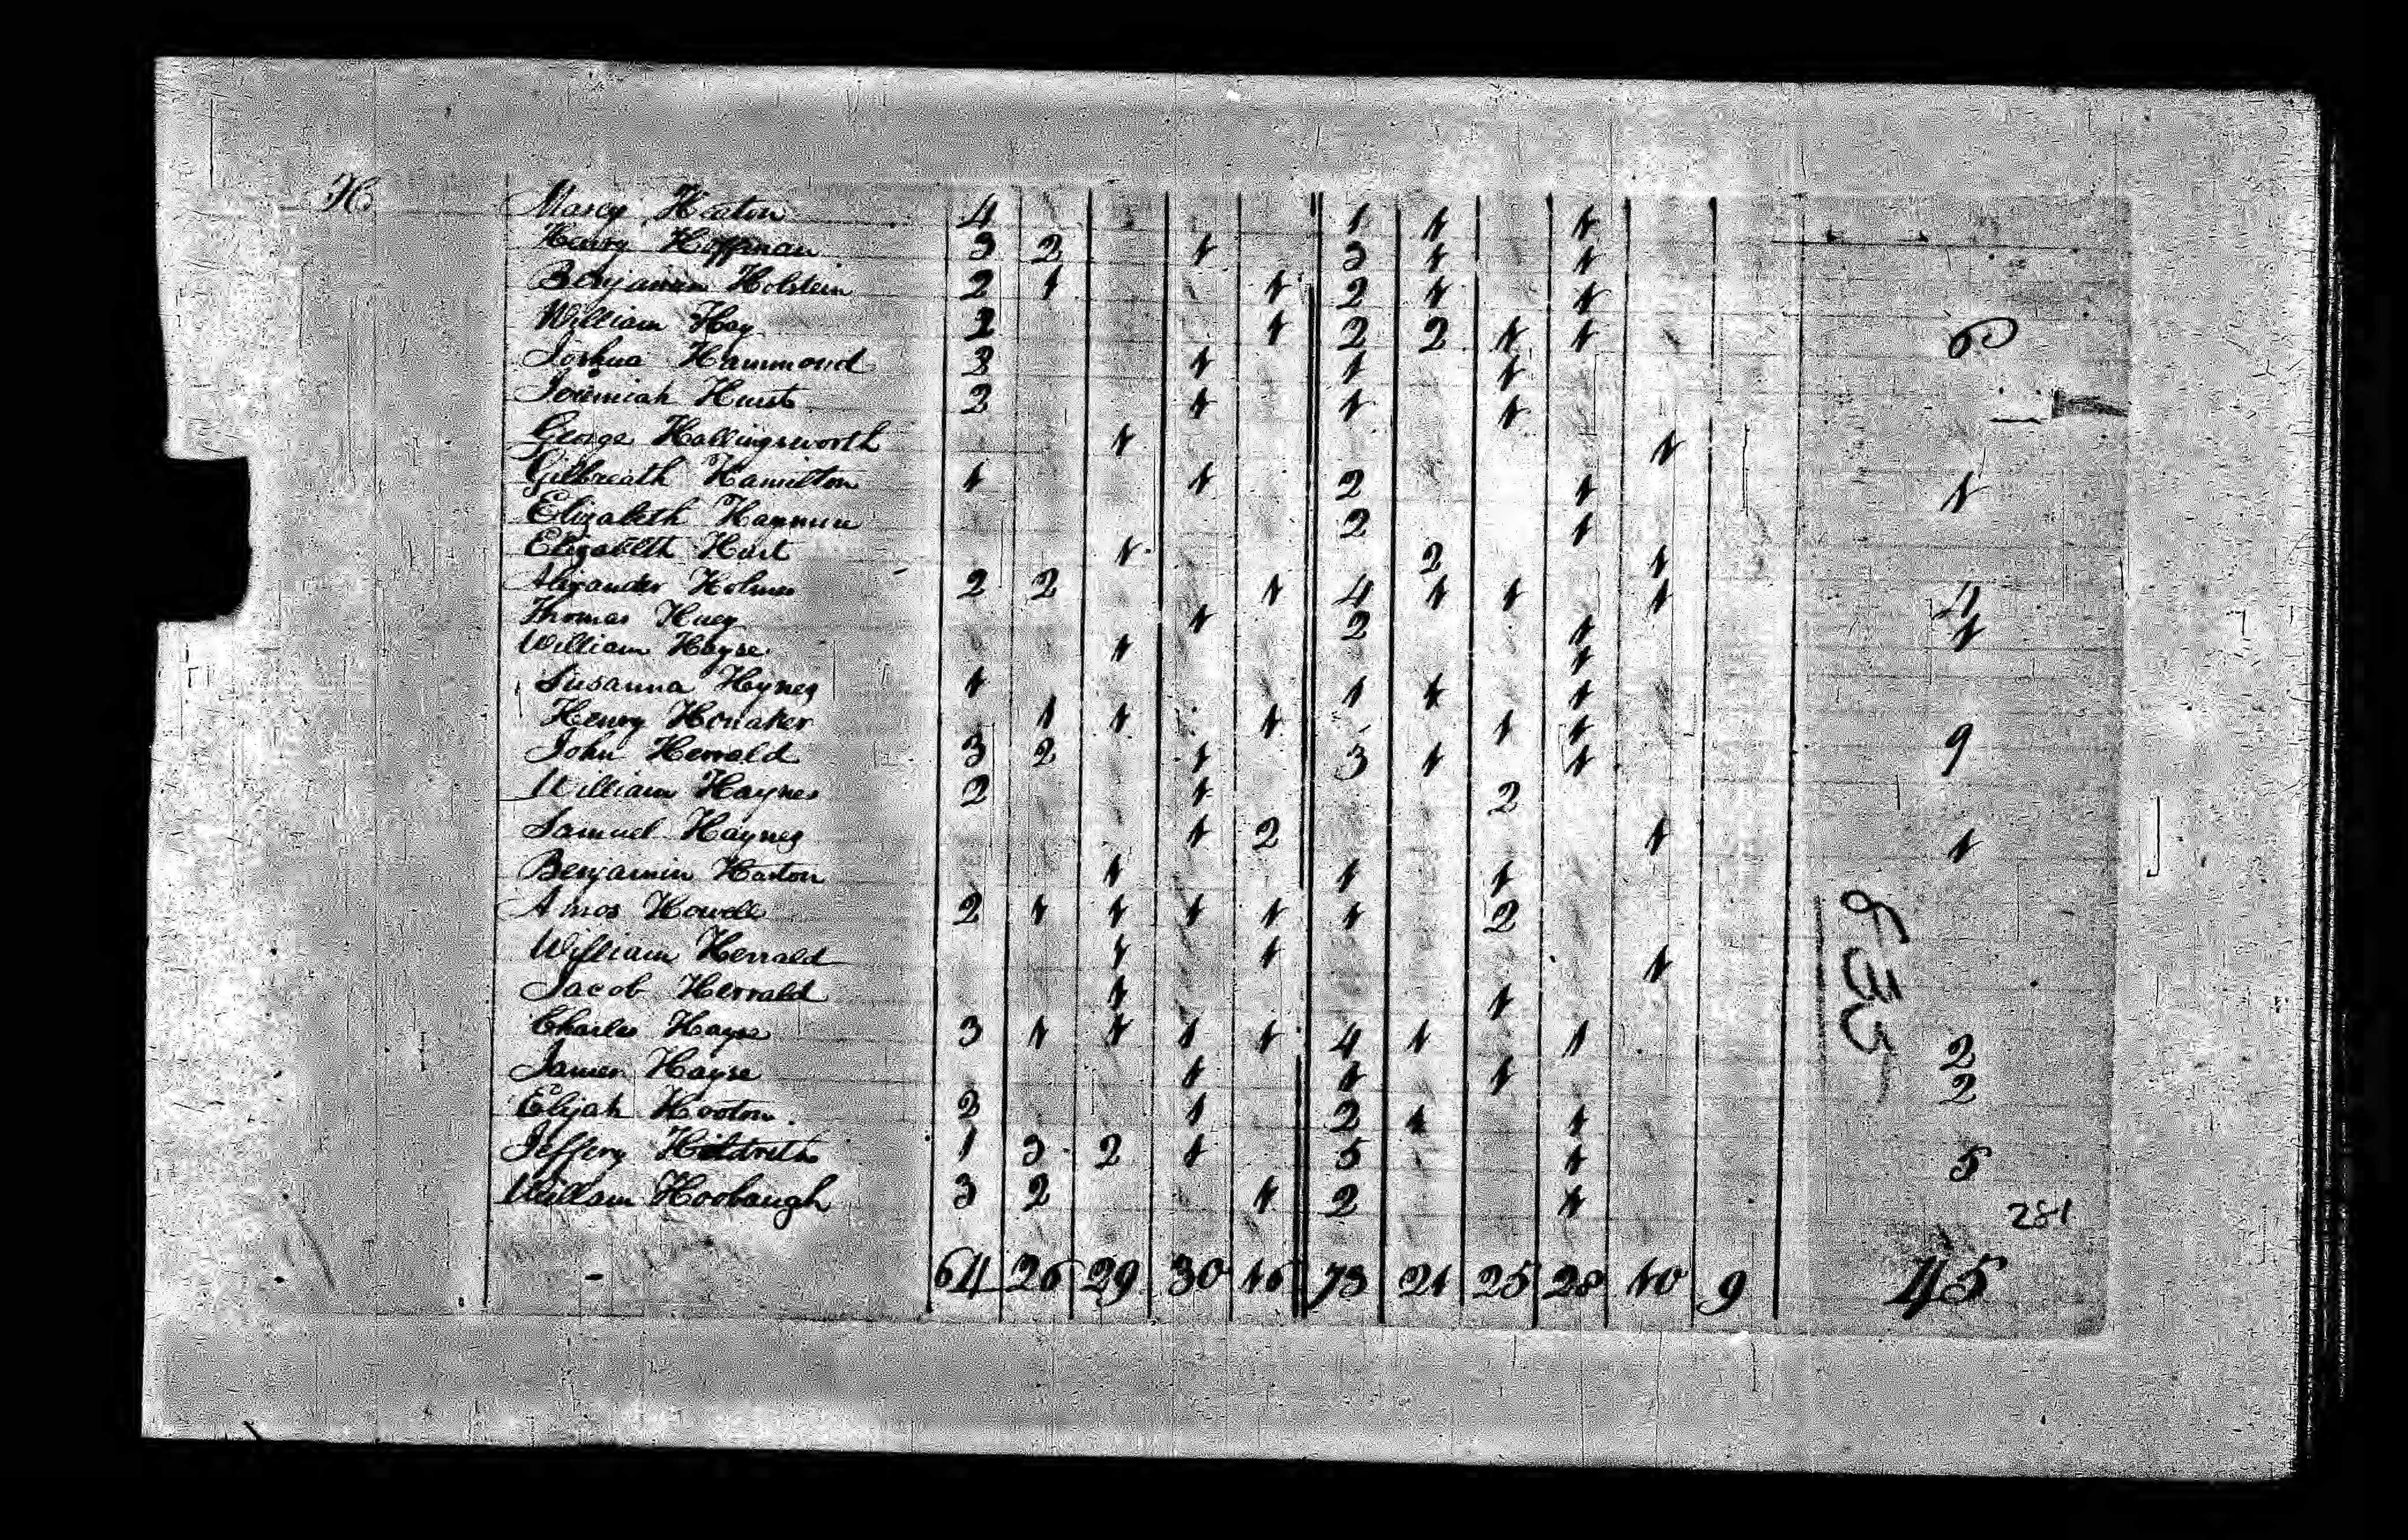 H.
Marcy Heaton 4 1 1 1
Henry Hoffman 3 2 1 3 1 1
Benjamin Holstein 2 1 1 2 1 1
William Hay 2 1 2 2 1 1 6
Joshua Hammond 3 1 1 1
Joremiah Hurst 2 1 1 1
George Hallingsworth 1 1
Gilbreath Hamilton 1 1 2 1 1
Elizabeth 2 1
Elizabeth Hart 1 2 1
Alexander Holmes 2 2 1 4 1 1 1 4
Thomas Huey 1 2 1 1
William Hayse 1 1
Susanna Haynes 1 1 1 1
Henry Honaker 1 1 1 1 1 9
John Herrald 3 2 1 3 1 1
William Haynes 2 1 2
Samuel Haynes 1 2 1 1
Benjamin Harton 1 1 1
Amos Howell 2 1 1 1 1 1 2
William Herrald 1 1 1
Jacob Herrald 1 1
Charles Hayse 3 1 1 1 1 4 1 1 2
James Hayse 1 1 1 2
Elijah Hooton 2 1 2 1 1
Jeffery Hildreth 1 3 2 1 5 1 5
William Hoobaugh 3 2 1 2 1
281
64 26 29 30 16 73 21 25 28 10 9 45